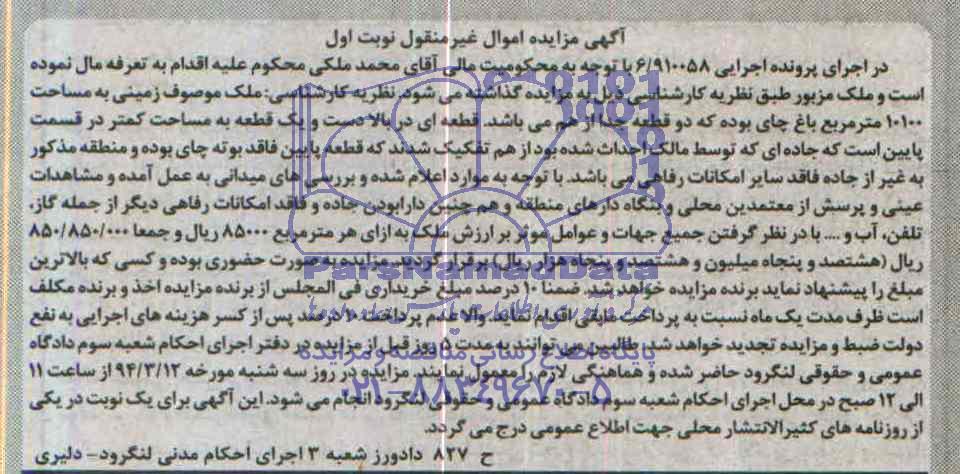 آگهی مزایده اموال غیرمنقول نوبت اول
در اجرای پرونده اجرایی ۶/۹۱۰۰۵۸ با توجه به محکومیت مالی آقای محمد ملکی محکوم علیه اقدام به تعرفه مال نموده
است و ملک مزبور طبق نظریه کارشناسی ذیل به مزایده گذاشته می شود. نظریه کارشناسی: ملک موصوف زمینی به مساحت
۱۰۱۰۰ مترمربع باغ چای بوده که دو قطعه جدا از هم می باشد. قطعه ای در بالا دست و یک قطعه به مساحت کمتر در قسمت
پایین است که جاده ای که توسط مالک احداث شده بود از هم تفکیک شدند که قطعه پایین فاقد بوته چای بوده و منطقه مذکور
به غیر از جاده فاقد سایر امکانات رفاهی می باشد. با توجه به موارد اعلام شده و بررسی های میدانی به عمل آمده و مشاهدات
عینی و پرسش از معتمدین محلی و بنگاه دارهای منطقه و هم چنین دارابودن جاده و فاقد امکانات رفاهی دیگر از جمله گاز،
تلفن، آب و .... با در نظر گرفتن جمیع جهات و عوامل موثر بر ارزش ملک به ازای هر مترمربع ۸۵۰۰۰ ریال و جمعا ۸۵۰/۸۵۰/۰۰۰
ریال (هشتصد و پنجاه میلیون و هشتصد و پنجاه هزار ریال) برقرار گردید. مزایده به صورت حضوری بوده و کسی که بالاترین
مبلغ را پیشنهاد نماید برنده مزایده خواهد شد. ضمنا ۱۰ درصد مبلغ خریداری فی المجلس از برنده مزایده اخذ و برنده مکلف
است ظرف مدت یک ماه نسبت به پرداخت مابقی اقدام نماید. والا عدم پرداخت ۱۰ درصد پس از کسر هزینه های اجرایی به نفع
دولت ضبط و مزایده تجدید خواهد شد. طالبین می توانند به مدت ۵ روز قبل از مزایده در دفتر اجرای احکام شعبه سوم دادگاه
عمومی و حقوقی لنگرود حاضر شده و هماهنگی لازم را معمول نمایند. مزایده در روز سه شنبه مورخه ۹۴/۳/۱۲ از ساعت ۱۱
الی ۱۲ صبح در محل اجرای احکام شعبه سوم دادگاه عمومی و حقوقی لنگرود انجام می شود. این آگهی برای یک نوبت در یکی
از روزنامه های کثیرالانتشار محلی جهت اطلاع عمومی درج می گردد.
ح ۸۲۷ دادورز شعبه ۳ اجرای احکام مدنی لنگرود- دلیری
ParsNamadData
پایگاه اطلاع رسانی مناقصه و مزایده
۰۲۱-۸۸۳۴۹۶۷۰-۵